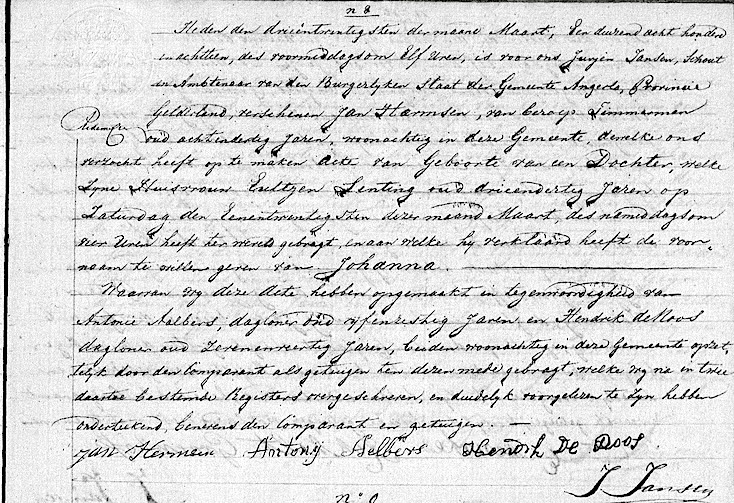 n 8
Heden den drieentwintigsten der maand Maart, Een duizend acht honderd
en achttien, des voormiddags om Elf Uren, is voor ons Jurjen Jansen, Schout
en Ambtenaar van den Burgerlyken Staat der Gemeente Angerlo, Provincie
Gelderland, verschenen Jan Harmsen, van beroep Timmerman
oud achtendertig Jaren, woonachtig in deze Gemeente, dewelke ons
verzocht heeft op te maken Acte van Geboorte van een Dochter, welke
Zyne Huisvrouw Eultjen Senting oud drieendertig Jaren op
Zaturdag den Eenentwintigsten dezer maand Maart, des namiddags om
vier Uren heeft ter wereld gebragt, en aan welke hy verklaard heeft de voor-
naam te willen geven van Johanna.
Waarvan wy deze Acte hebben opgemaakt in tegenwoordigheid van
Antonie Aelbers, dagloner oud vyfenzestig Jaren en Hendrik de Roos
dagloner oud Zevenenveertig Jaren, beiden woonachtig in deze Gemeente opzet-
telyk door den Comparant als getuigen ten dezen mede gebragt, welke wy na in twee
daartoe bestemde Registers overgeschreven, en duidelyk voorgelezen te zyn hebben
ondertekend, benevens den Comparant en getuigen.
Jan Hermsen Antony Aelbers Hendrik De Roos
J Jansen
n° 9